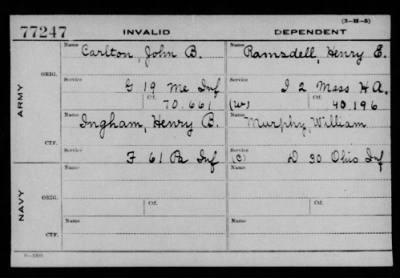 (3-111-5)
77247 INVALID DEPENDENT
Name Name
Carlton, John B. Ramsdell, Henry E.
ARMY
ORIG.
Service Service
G 19 Me Inf I 2 Mass H A.
Ctf. 70.661 (W) Ctf. 40.196
Name Name
Ingham, Henry B. Murphy, William
CTF.
Service Service
F 61 Pa Inf (C) D 30 Ohio Inf
NAVY
Name Name
ORIG.
Service Ctf. Service Ctf.
Name Name
CTF.
Service Service